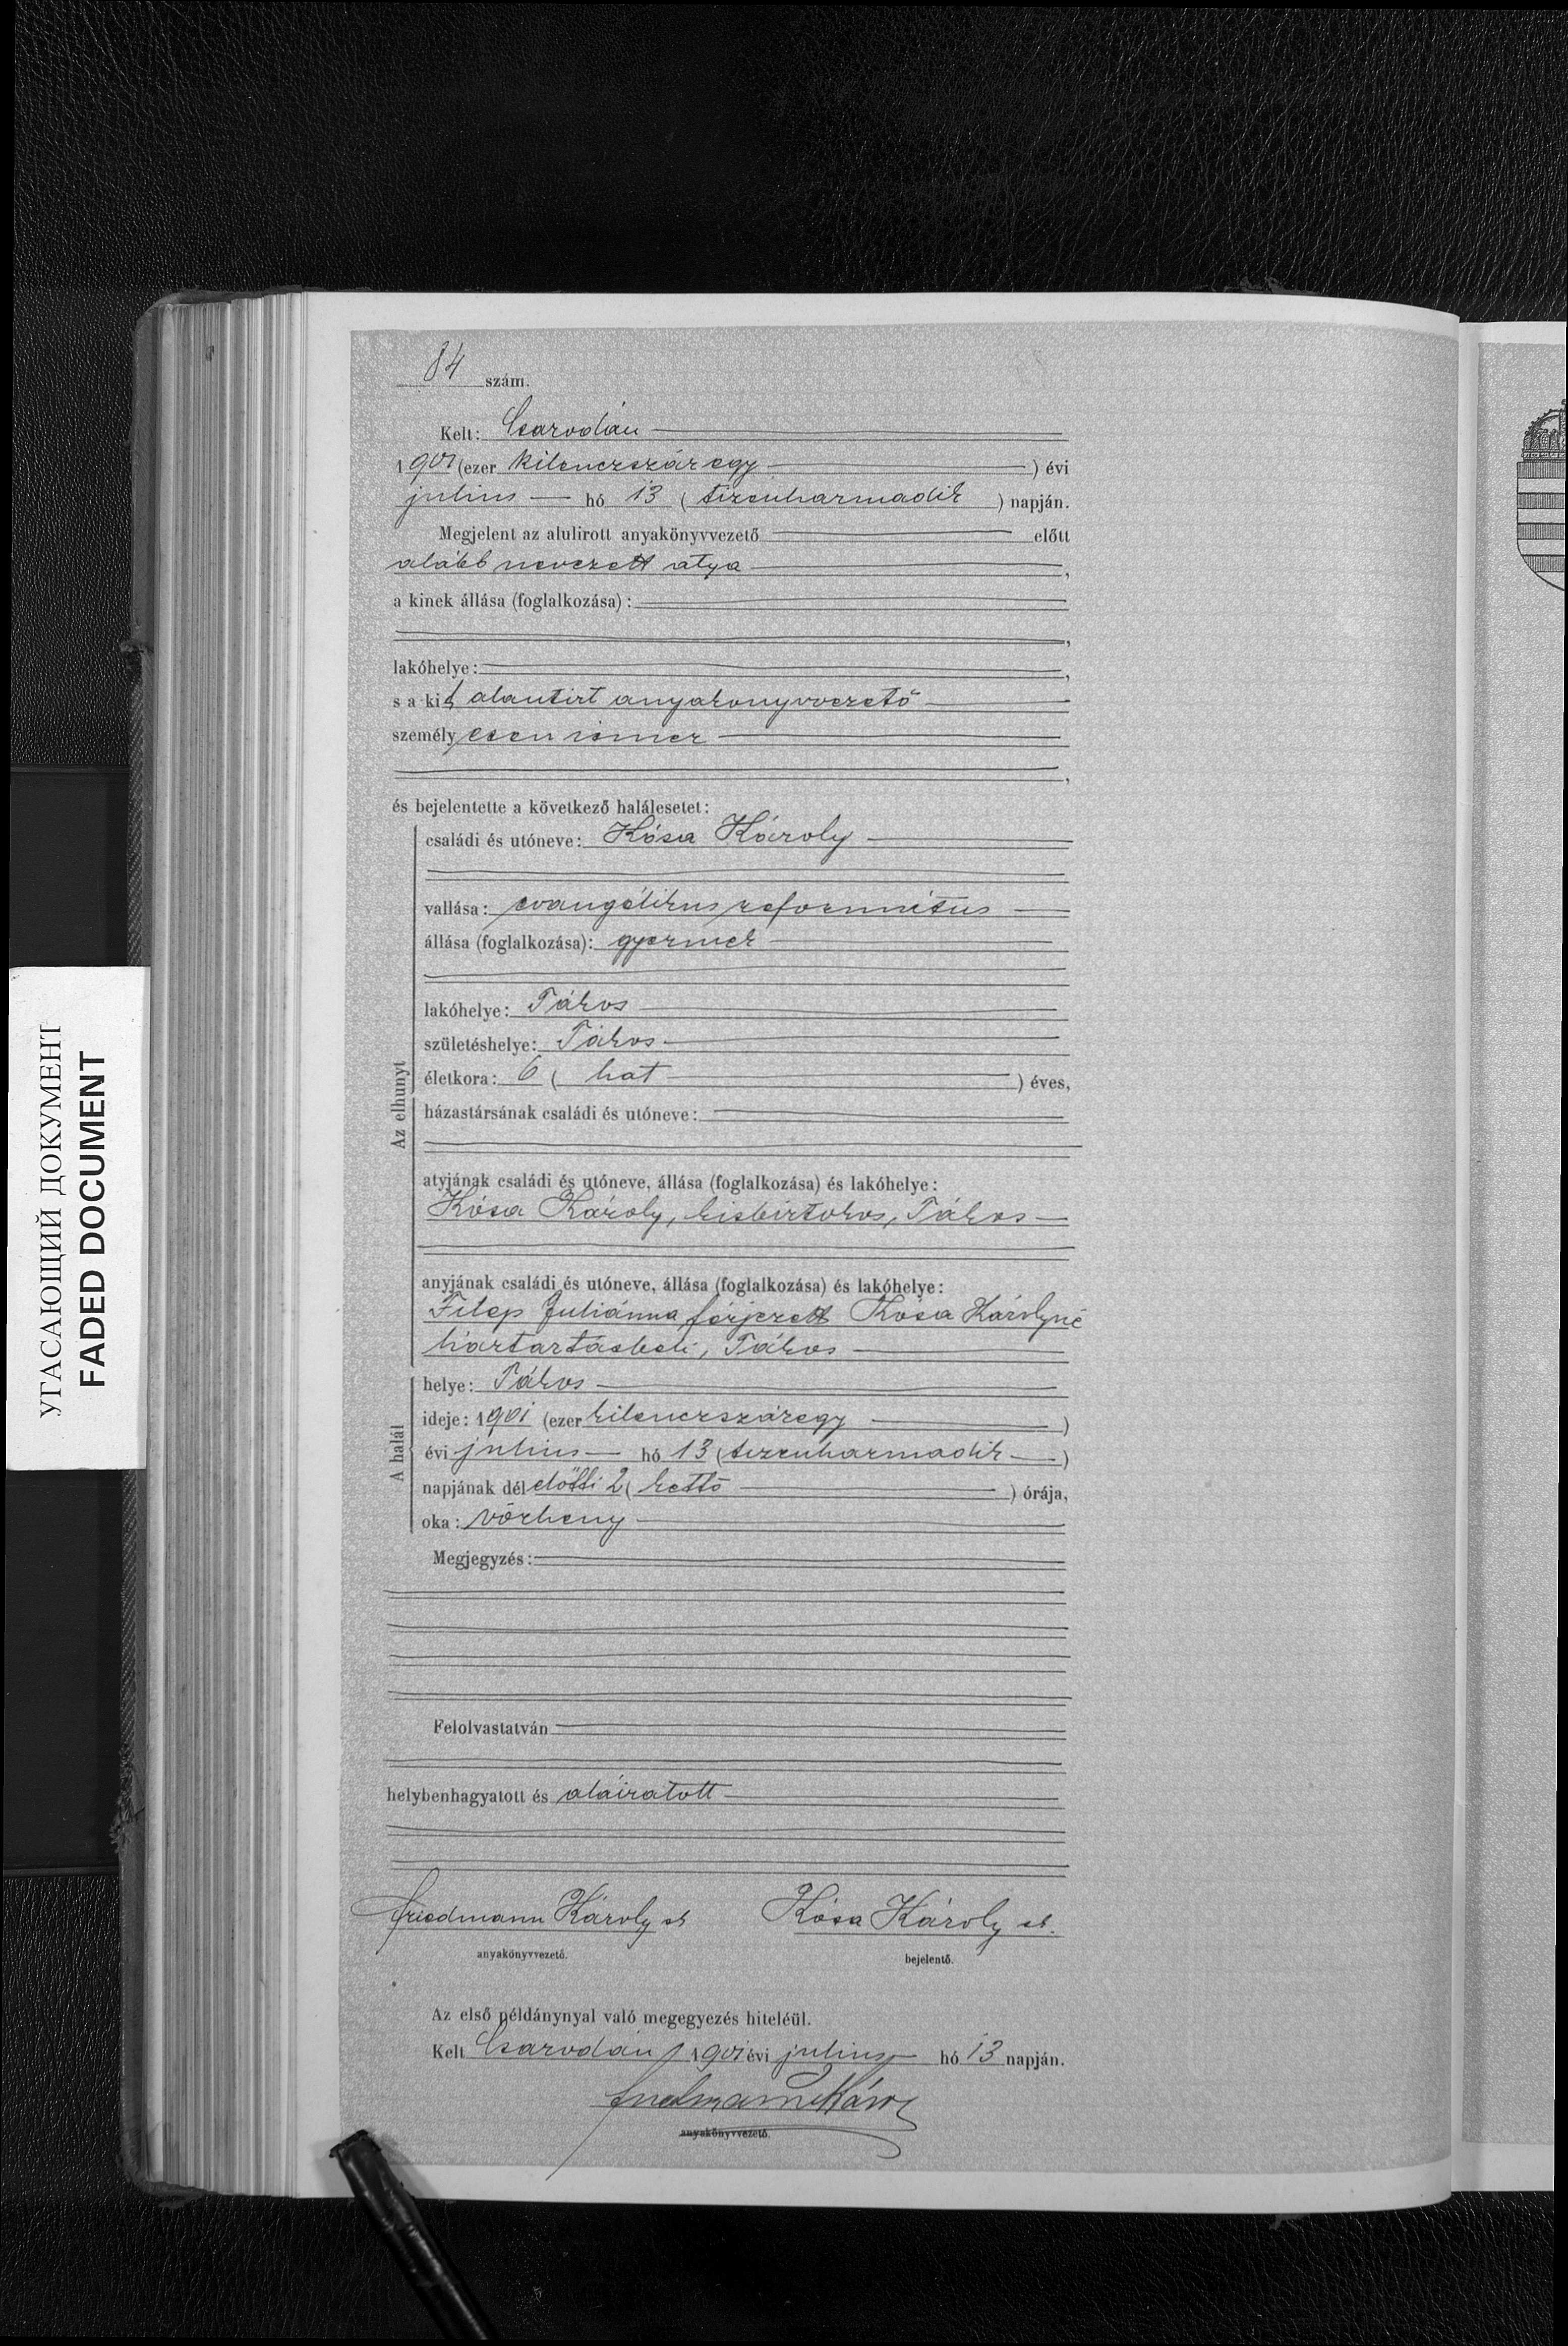 84 szám.
Kelt: Csarodán
1901 (ezer kilenczszáregy ) évi
julius hó 13 ( tizenharmadik ) napján.
Megjelent az alulirott anyakönyvvezető előtt
alább nevezett atya ,
a kinek állása (foglalkozása) :
,
lakóhelye : ,
s a kit alantirt anyakönyvvezető
személyesen ismer
,
és bejelentette a következő halálesetet :
családi és utóneve : Kósa Károly
vallása : evangélikus református
állása (foglalkozása) : gyermek
lakóhelye : Tákos
születéshelye : Tákos
életkora : 6 ( hat ) éves,
házastársának családi és utóneve :
Az elhunyt
atyjának családi és utóneve, állása (foglalkozása) és lakóhelye :
Kósa Károly, kisbirtokos, Tákos
anyjának családi és utóneve, állása (foglalkozása) és lakóhelye :
Filep Juliánna férjezett Kósa Károlyné
háztartásbeli, Tákos
helye : Tákos
ideje : 1901 (ezer kilenczszáregy )
évi julius hó 13 ( tizenharmadik )
A halál
napjának dél előtti 2 ( kettő ) órája,
oka : vörheny
Megjegyzés :
Felolvastatván
helybenhagyatott és aláiratott
Friedmann Károly sk Kósa Károly sk.
anyakönyvvezető. bejelentő.
Az első példánynyal való megegyezés hiteléül.
Kelt Csarodán 1901 évi julius hó 13 napján.
Friedmann Károly
anyakönyvvezető.
УГАСАЮЩИЙ ДОКУМЕНТ
FADED DOCUMENT